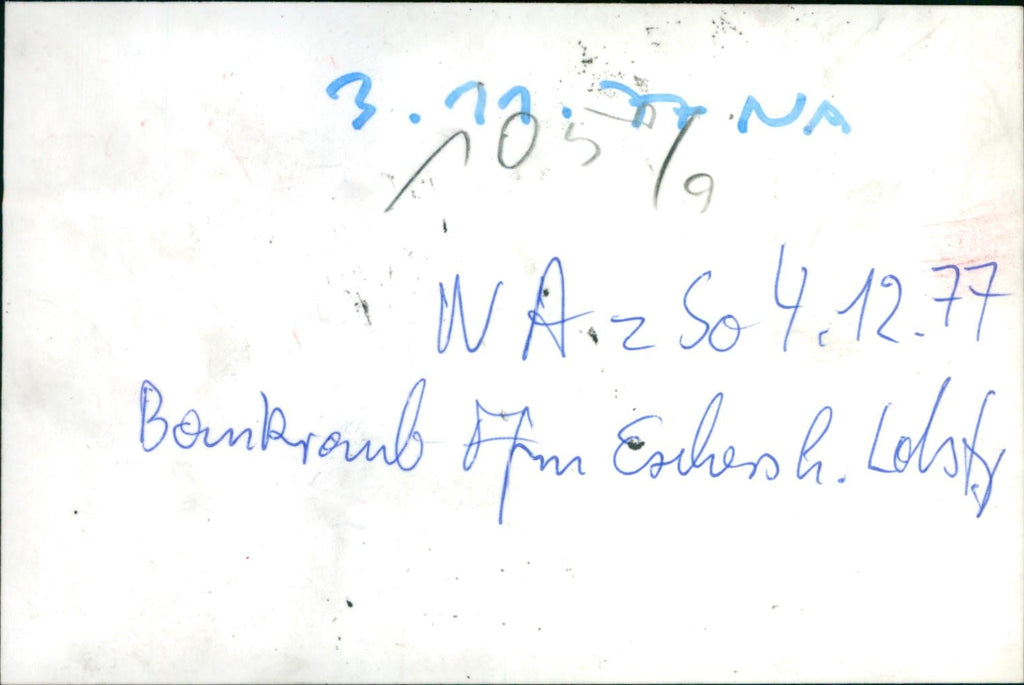 3.11.77 NA
105/9
NA z So 4.12.77
Bankraub Ffm Eschersh. Ldstr